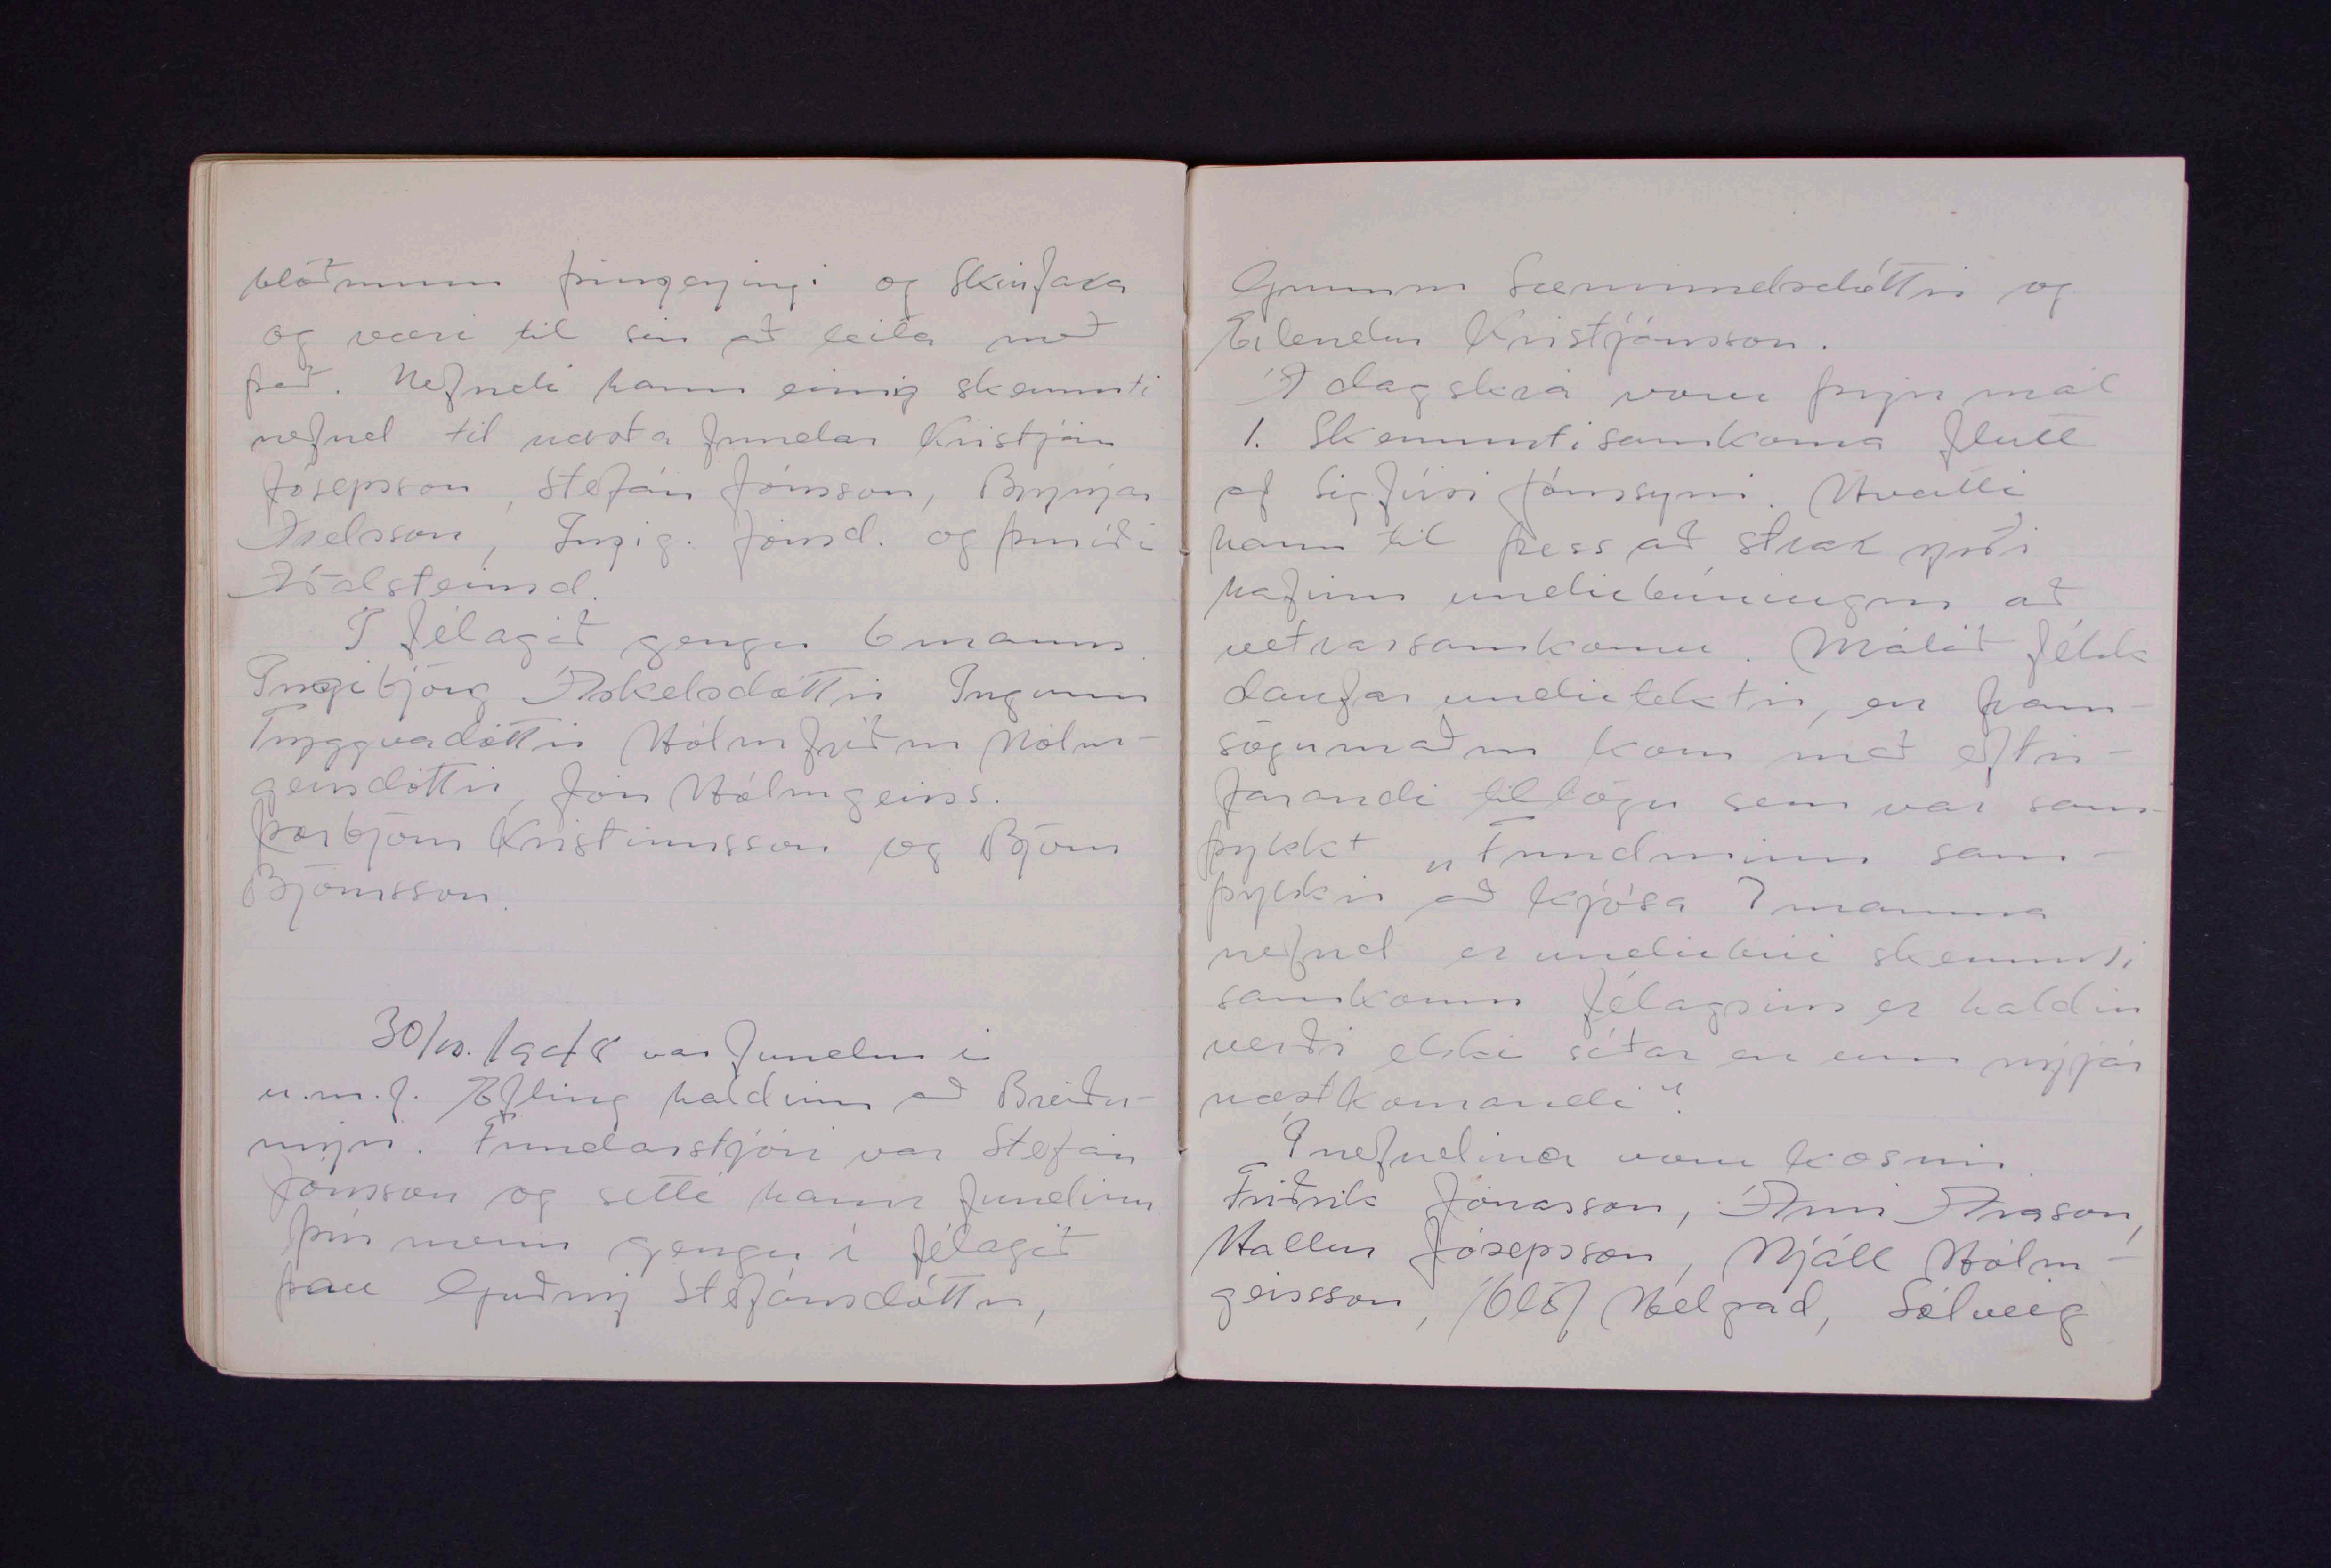 blöðunum Þingeyingi og Skinfaxa
og væri til sín að leita með
það. Nefndi hann einnig skemmti
nefnd til næsta fundar Kristján
Jósepsson, Stefán Jónsson, Brynjar
Axelsson, Ingig. Jónsd. og Þuríði
Aðalsteinsd.
Í félagið gengu 6 manns.
Ingibjörg Áskelsdóttir Ingunn
Tryggvadóttir Hólmfríður Hólm-
geirsdóttir, Jón Hólmgeirss.
Þorbjörn Kristinnsson og Björn
Björnsson.
30/10. 1948 var fundur í
u.m.f. Efling haldinn að Breiðu-
mýri. Fundarstjóri var Stefán
Jónsson og setti hann fundinn
Þrír menn gengu í félagið
þau Guðný Stefánsdóttir,
Gunnur Sæmundsdóttir og
Erlendur Kristjánsson.
Á dagskrá voru þrjú mál
1. Skemmtisamkoma flutt
af Sigfúsi Jónssyni. Hvatti
hann til þess að strax yrði
hafinn undirbúningur að
vetrarsamkomu. Málið fékk
daufar undirtektir, en fram-
sögumaður kom með eftir-
farandi tillögu sem var sam-
þykkt „Fundurinn sam-
þykkir að kjósa 7 manna
nefnd er undirbúi skemmti
samkomu félagsins er haldin
verði ekki síðar en um nýjár
næstkomandi“.
Í nefndina voru kosnir.
Friðrik Jónasson, Árni Arason,
Hallur Jósepsson, Njáll Hólm-
geirsson, Ólöf Helgad, Sólveig